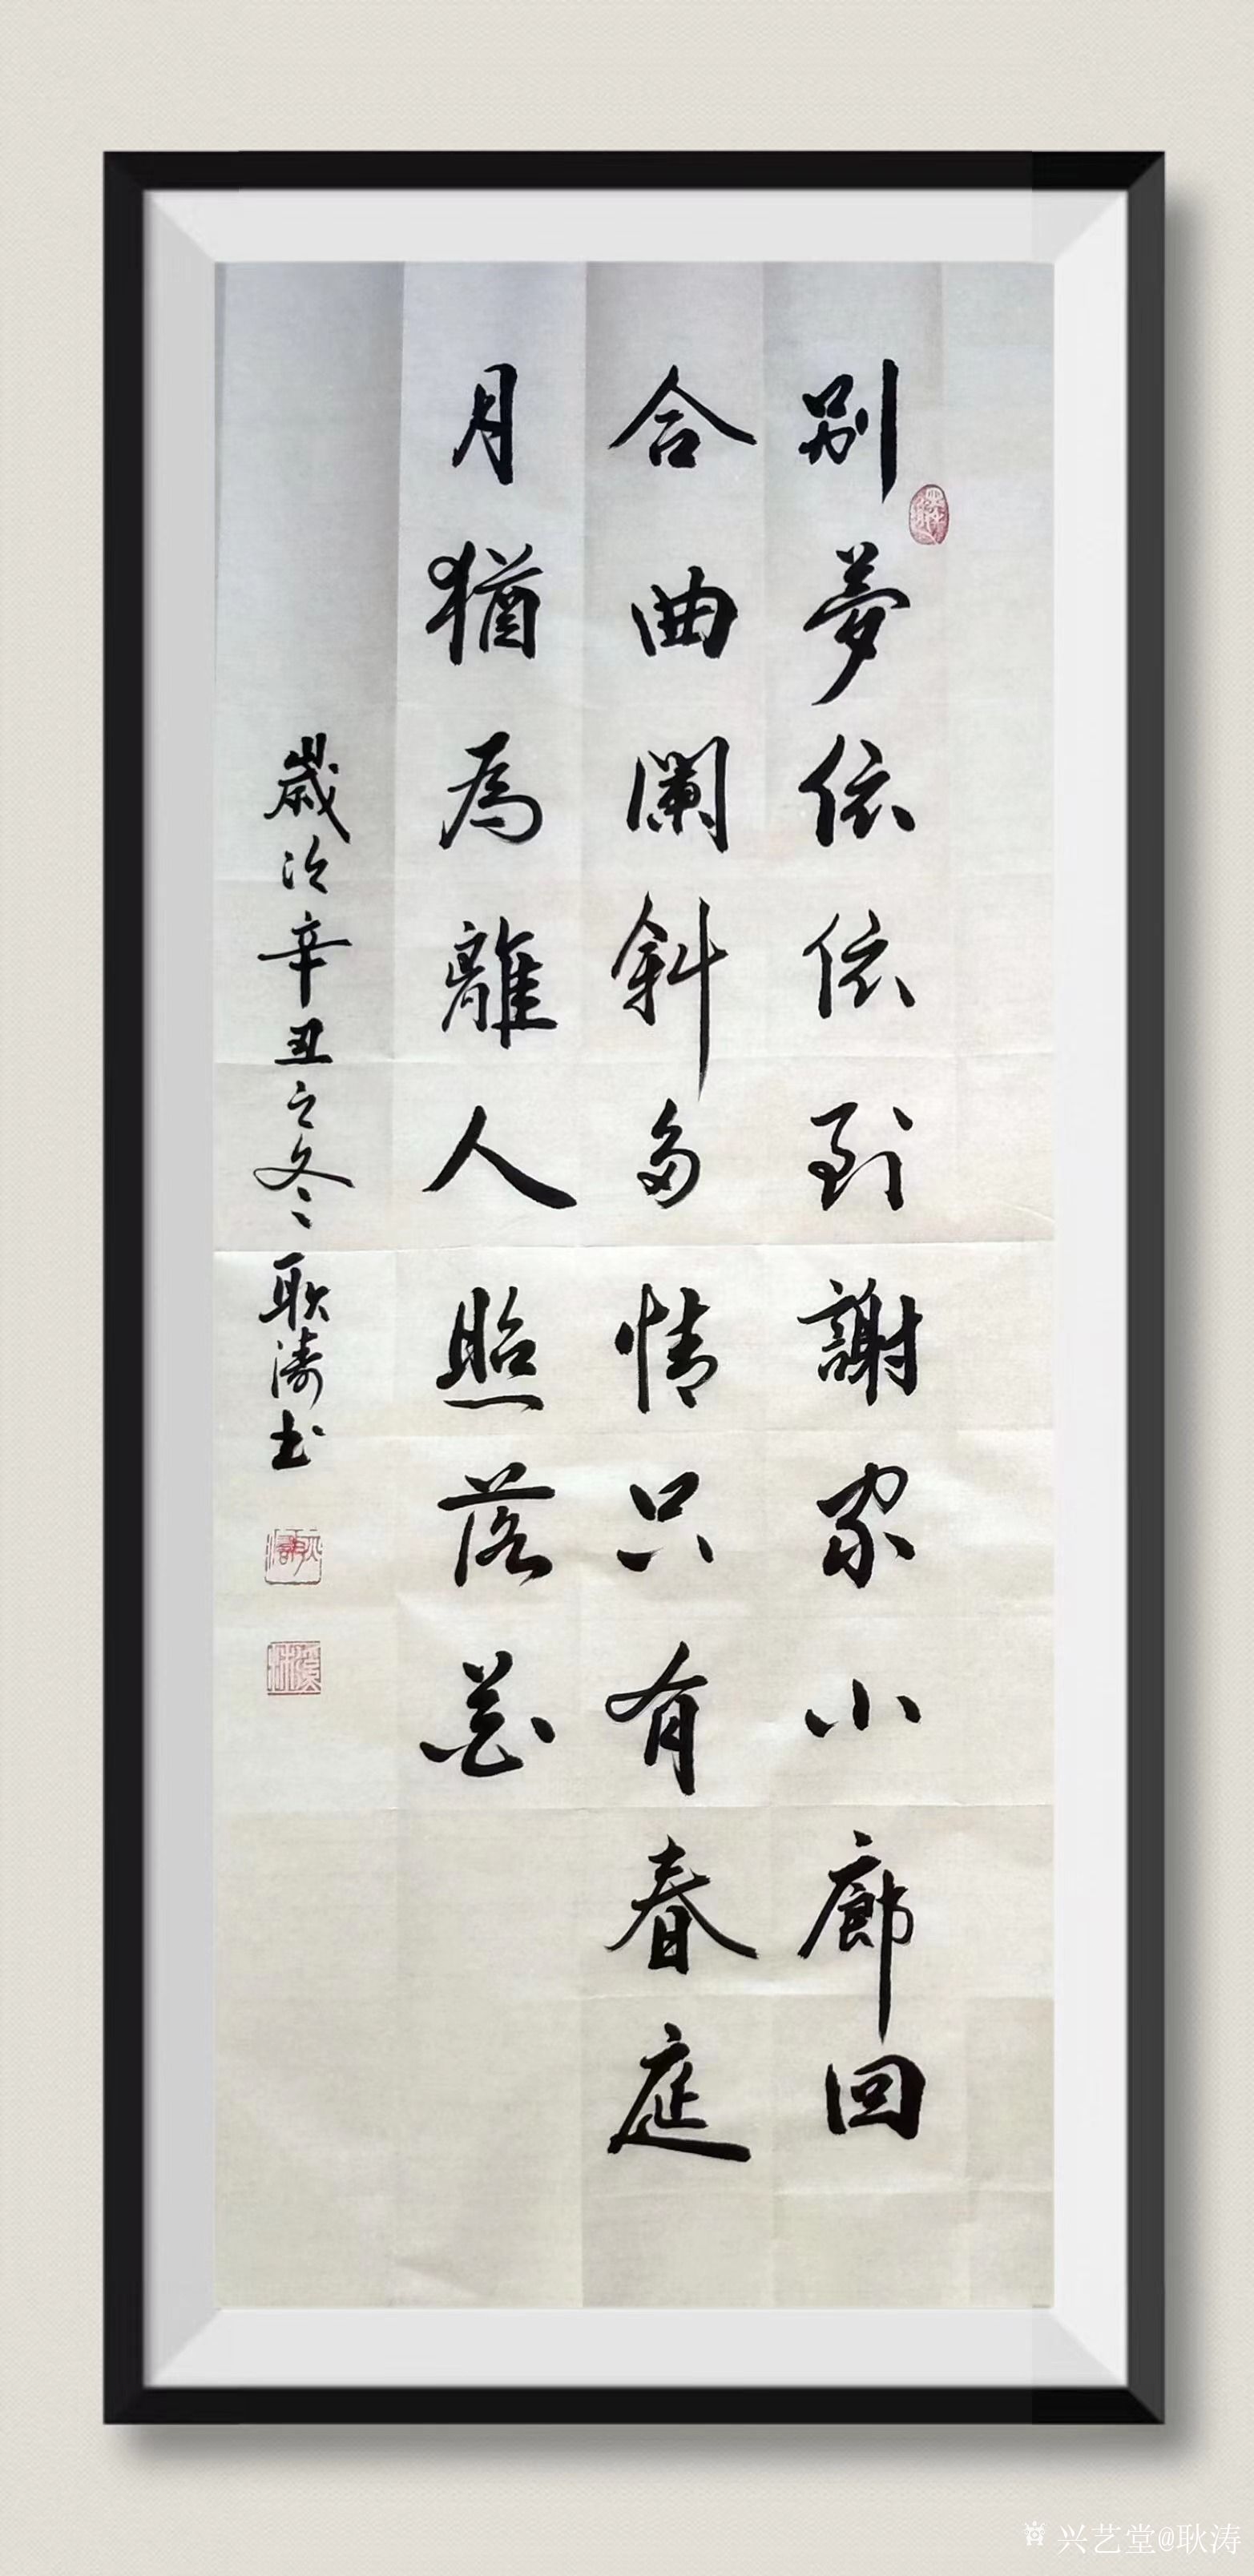 别夢依依到謝家小廊回
合曲闌斜多情只有春庭
月猶為離人照落花
歲次辛丑之冬耿濤书
兴艺堂@耿涛